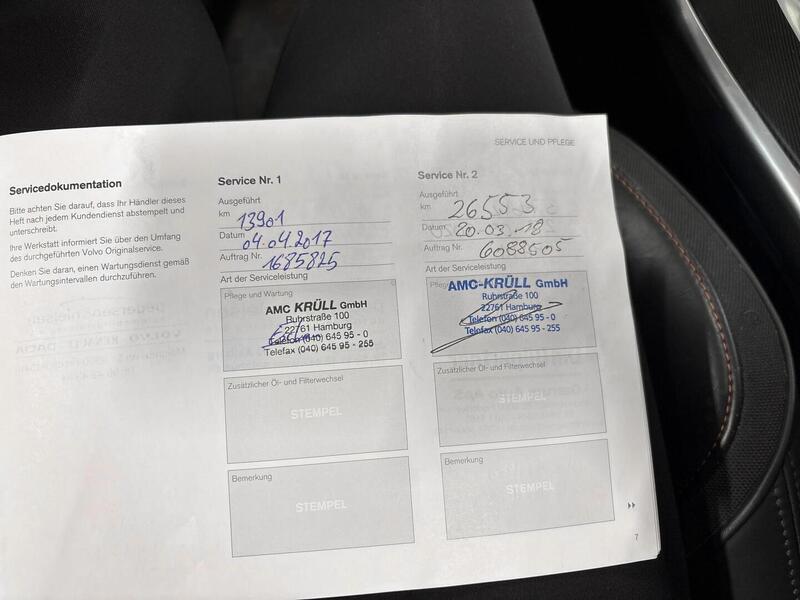 SERVICE UND PFLEGE
Servicedokumentation
Bitte achten Sie darauf, dass Ihr Händler dieses
Heft nach jedem Kundendienst abstempelt und
unterschreibt.
Ihre Werkstatt informiert Sie über den Umfang
des durchgeführten Volvo Originalservice.
Denken Sie daran, einen Wartungsdienst gemäß
den Wartungsintervallen durchzuführen.
Service Nr. 1
Ausgeführt
km 13901
Datum 04.04.2017
Auftrag Nr. 1685825
Art der Serviceleistung
Pflege und Wartung
AMC KRÜLL GmbH
Ruhrstraße 100
22761 Hamburg
Telefon (040) 645 95 - 0
Telefax (040) 645 95 - 255
Zusätzlicher Öl- und Filterwechsel
STEMPEL
Bemerkung
STEMPEL
Service Nr. 2
Ausgeführt
km 26553
Datum 20.03.18
Auftrag Nr. 6088505
Art der Serviceleistung
AMC-KRÜLL GmbH
Ruhrstraße 100
22761 Hamburg
Telefon (040) 645 95 - 0
Telefax (040) 645 95 - 255
Zusätzlicher Öl- und Filterwechsel
STEMPEL
Bemerkung
STEMPEL
7